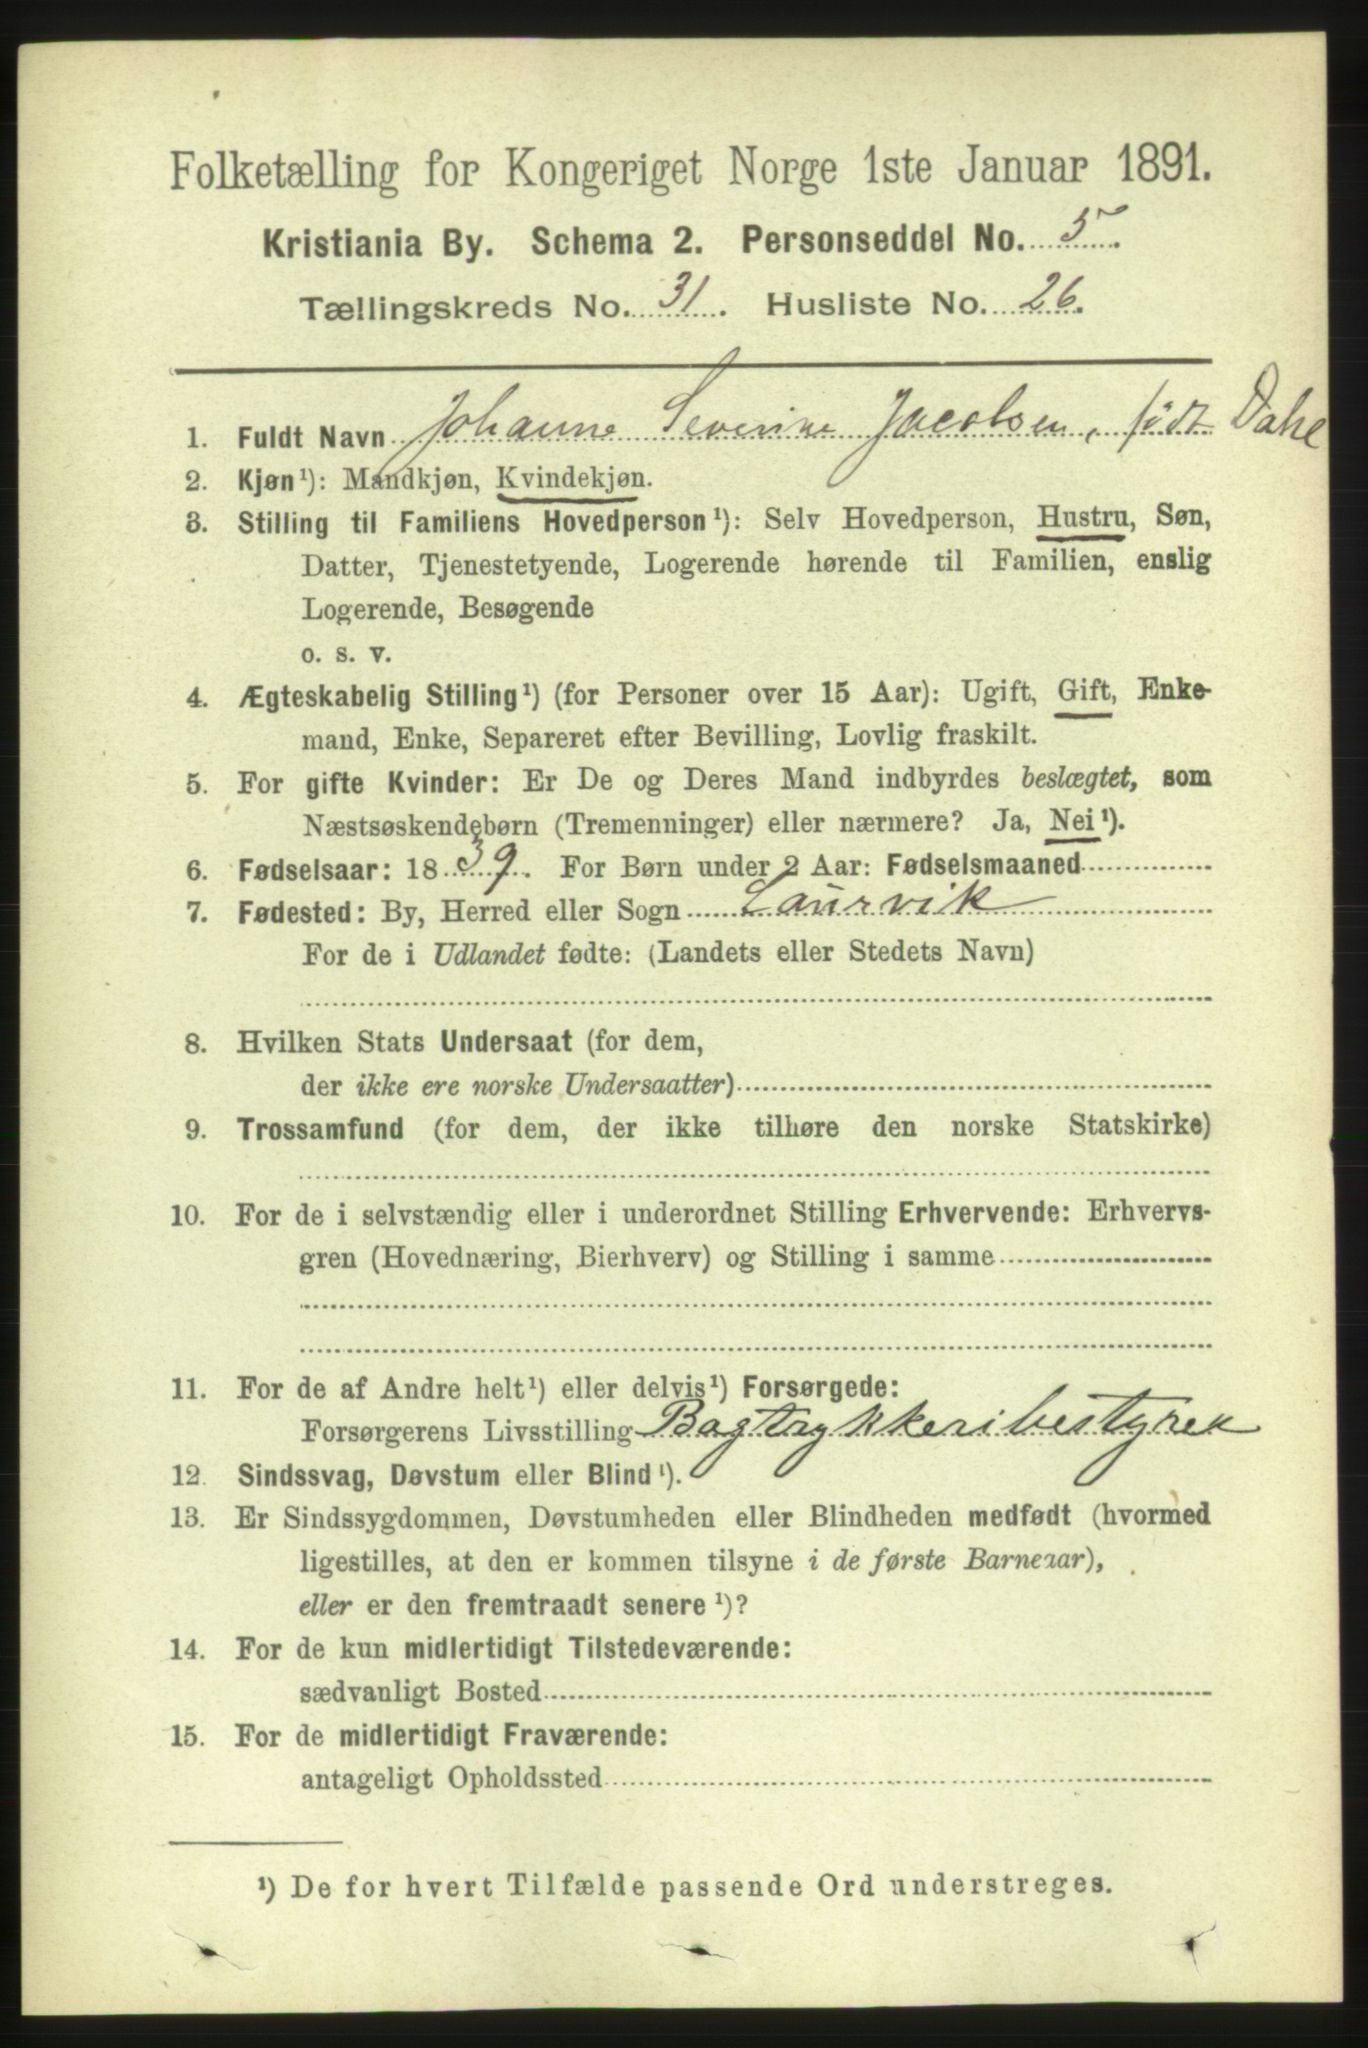 Folketælling for Kongeriget Norge 1ste Januar 1891.
Kristiania By. Schema 2. Personseddel No. 5.
Tællingskreds No. 31. Husliste No. 26.
1. Fuldt Navn Johanne Severine Jacobsen, født Dahl
2. Kjøn¹): Mandkjøn, Kvindekjøn.
3. Stilling til Familiens Hovedperson¹): Selv Hovedperson, Hustru, Søn,
Datter, Tjenestetyende, Logerende hørende til Familien, enslig
Logerende, Besøgende
o. s. v.
4. Ægteskabelig Stilling¹) (for Personer over 15 Aar): Ugift, Gift, Enke-
mand, Enke, Separeret efter Bevilling, Lovlig fraskilt.
5. For gifte Kvinder: Er De og Deres Mand indbyrdes beslægtet, som
Næstsøskendebørn (Tremenninger) eller nærmere? Ja, Nei¹).
6. Fødselsaar: 1839. For Børn under 2 Aar: Fødselsmaaned
7. Fødested: By, Herred eller Sogn Laurvik
For de i Udlandet fødte: (Landets eller Stedets Navn)
8. Hvilken Stats Undersaat (for dem,
der ikke ere norske Undersaatter)
9. Trossamfund (for dem, der ikke tilhøre den norske Statskirke)
10. For de i selvstændig eller i underordnet Stilling Erhvervende: Erhvervs-
gren (Hovednæring, Bierhverv) og Stilling i samme
11. For de af Andre helt¹) eller delvis¹) Forsørgede:
Forsørgerens Livsstilling Bogtrykkeribestyrer
12. Sindssvag, Døvstum eller Blind¹).
13. Er Sindssygdommen, Døvstumheden eller Blindheden medfødt (hvormed
ligestilles, at den er kommen tilsyne i de første Barneaar),
eller er den fremtraadt senere¹)?
14. For de kun midlertidigt Tilstedeværende:
sædvanligt Bosted
15. For de midlertidigt Fraværende:
antageligt Opholdssted
¹) De for hvert Tilfælde passende Ord understreges.